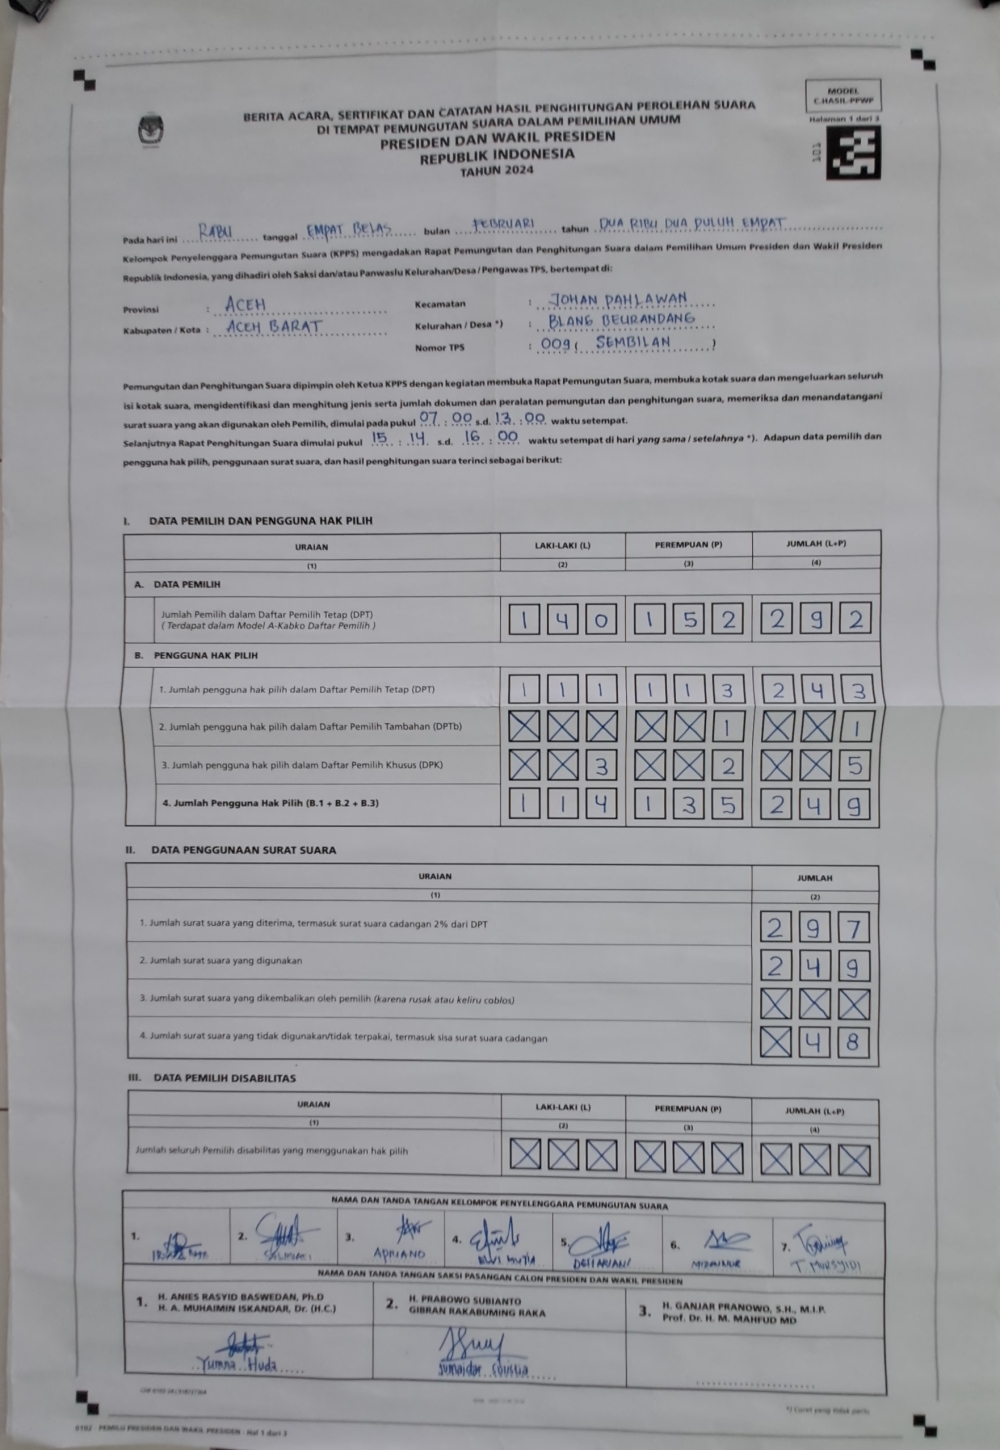 MODEL
C.HASIL-PPWP
Halaman 1 dari 3
101
BERITA ACARA, SERTIFIKAT DAN CATATAN HASIL PENGHITUNGAN PEROLEHAN SUARA
DI TEMPAT PEMUNGUTAN SUARA DALAM PEMILIHAN UMUM
PRESIDEN DAN WAKIL PRESIDEN
REPUBLIK INDONESIA
TAHUN 2024
Pada hari ini RABU tanggal EMPAT BELAS bulan FEBRUARI tahun DUA RIBU DUA PULUH EMPAT
Kelompok Penyelenggara Pemungutan Suara (KPPS) mengadakan Rapat Pemungutan dan Penghitungan Suara dalam Pemilihan Umum Presiden dan Wakil Presiden
Republik Indonesia, yang dihadiri oleh Saksi dan/atau Panwaslu Kelurahan/Desa/Pengawas TPS, bertempat di:
Provinsi : ACEH Kecamatan : JOHAN PAHLAWAN
Kabupaten / Kota : ACEH BARAT Kelurahan / Desa *) : BLANG BEURANDANG
Nomor TPS : 009 ( SEMBILAN )
Pemungutan dan Penghitungan Suara dipimpin oleh Ketua KPPS dengan kegiatan membuka Rapat Pemungutan Suara, membuka kotak suara dan mengeluarkan seluruh
isi kotak suara, mengidentifikasi dan menghitung jenis serta jumlah dokumen dan peralatan pemungutan dan penghitungan suara, memeriksa dan menandatangani
surat suara yang akan digunakan oleh Pemilih, dimulai pada pukul 07 : 00 s.d. 13 : 00 waktu setempat.
Selanjutnya Rapat Penghitungan Suara dimulai pukul 15 : 14 s.d. 16 : 00 waktu setempat di hari yang sama / setelahnya *). Adapun data pemilih dan
pengguna hak pilih, penggunaan surat suara, dan hasil penghitungan suara terinci sebagai berikut:
I. DATA PEMILIH DAN PENGGUNA HAK PILIH
URAIAN LAKI-LAKI (L) PEREMPUAN (P) JUMLAH (L+P)
(1) (2) (3) (4)
A. DATA PEMILIH
Jumlah Pemilih dalam Daftar Pemilih Tetap (DPT) 1 4 0 1 5 2 2 9 2
( Terdapat dalam Model A-Kabko Daftar Pemilih )
B. PENGGUNA HAK PILIH
1. Jumlah pengguna hak pilih dalam Daftar Pemilih Tetap (DPT) 1 1 1 1 1 3 2 4 3
2. Jumlah pengguna hak pilih dalam Daftar Pemilih Tambahan (DPTb) X X X X X 1 X X 1
3. Jumlah pengguna hak pilih dalam Daftar Pemilih Khusus (DPK) X X 3 X X 2 X X 5
4. Jumlah Pengguna Hak Pilih (B.1 + B.2 + B.3) 1 1 4 1 3 5 2 4 9
II. DATA PENGGUNAAN SURAT SUARA
URAIAN JUMLAH
(1) (2)
1. Jumlah surat suara yang diterima, termasuk surat suara cadangan 2% dari DPT 2 9 7
2. Jumlah surat suara yang digunakan 2 4 9
3. Jumlah surat suara yang dikembalikan oleh pemilih (karena rusak atau keliru coblos) X X X
4. Jumlah surat suara yang tidak digunakan/tidak terpakai, termasuk sisa surat suara cadangan X 4 8
III. DATA PEMILIH DISABILITAS
URAIAN LAKI-LAKI (L) PEREMPUAN (P) JUMLAH (L+P)
(1) (2) (3) (4)
Jumlah seluruh Pemilih disabilitas yang menggunakan hak pilih X X X X X X X X X
NAMA DAN TANDA TANGAN KELOMPOK PENYELENGGARA PEMUNGUTAN SUARA
1. 2. 3. 4. 5. 6. 7.
APRIANO T MURSYIDI
NAMA DAN TANDA TANGAN SAKSI PASANGAN CALON PRESIDEN DAN WAKIL PRESIDEN
1. H. ANIES RASYID BASWEDAN, Ph.D
H. A. MUHAIMIN ISKANDAR, Dr. (H.C.)
2. H. PRABOWO SUBIANTO
GIBRAN RAKABUMING RAKA
3. H. GANJAR PRANOWO, S.H., M.I.P.
Prof. Dr. H. M. MAHFUD MD
Yumna Huda
*) Coret yang tidak perlu
0102 - PEMILU PRESIDEN DAN WAKIL PRESIDEN - Hal 1 dari 3